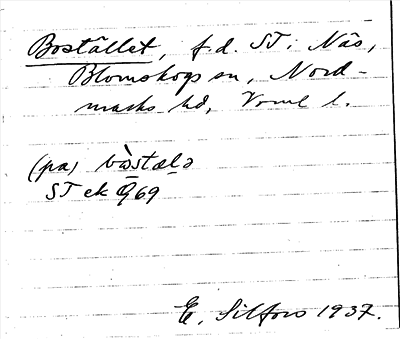 Bostället, f.d. ST i Näs,
Blomskogs sn, Nord-
marks hd, Vrml l.
(på) bòstælə
ST ek 969
E. Silfors 1937.